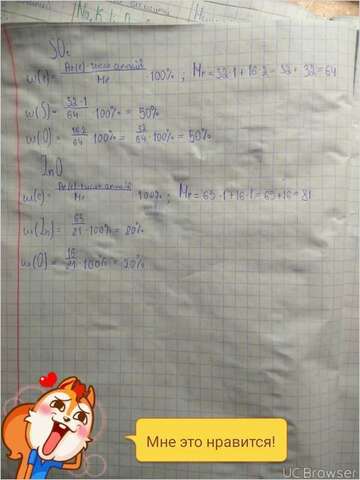 SO₂
w(e) = Ar(e)·число атомов / Mr · 100% ; Mr = 32·1 + 16·2 = 32 + 32 = 64
w(S) = 32·1 / 64 · 100% = 50%
w(O) = 16·2 / 64 · 100% = 32 / 64 · 100% = 50%
ZnO
w(e) = Ar(e)·число атомов / Mr · 100% ; Mr = 65·1 + 16·1 = 65 + 16 = 81
w(Zn) = 65 / 81 · 100% = 80%
w(O) = 16 / 81 · 100% = 20%
Мне это нравится!
UC Browser